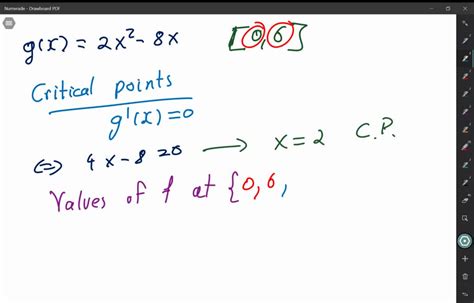 Numerade - Drawboard PDF
g(x) = 2x² - 8x [0,6]
Critical points
g'(x)=0
⇔ 4x-8=0 → x=2 C.P.
Values of f at {0,6,